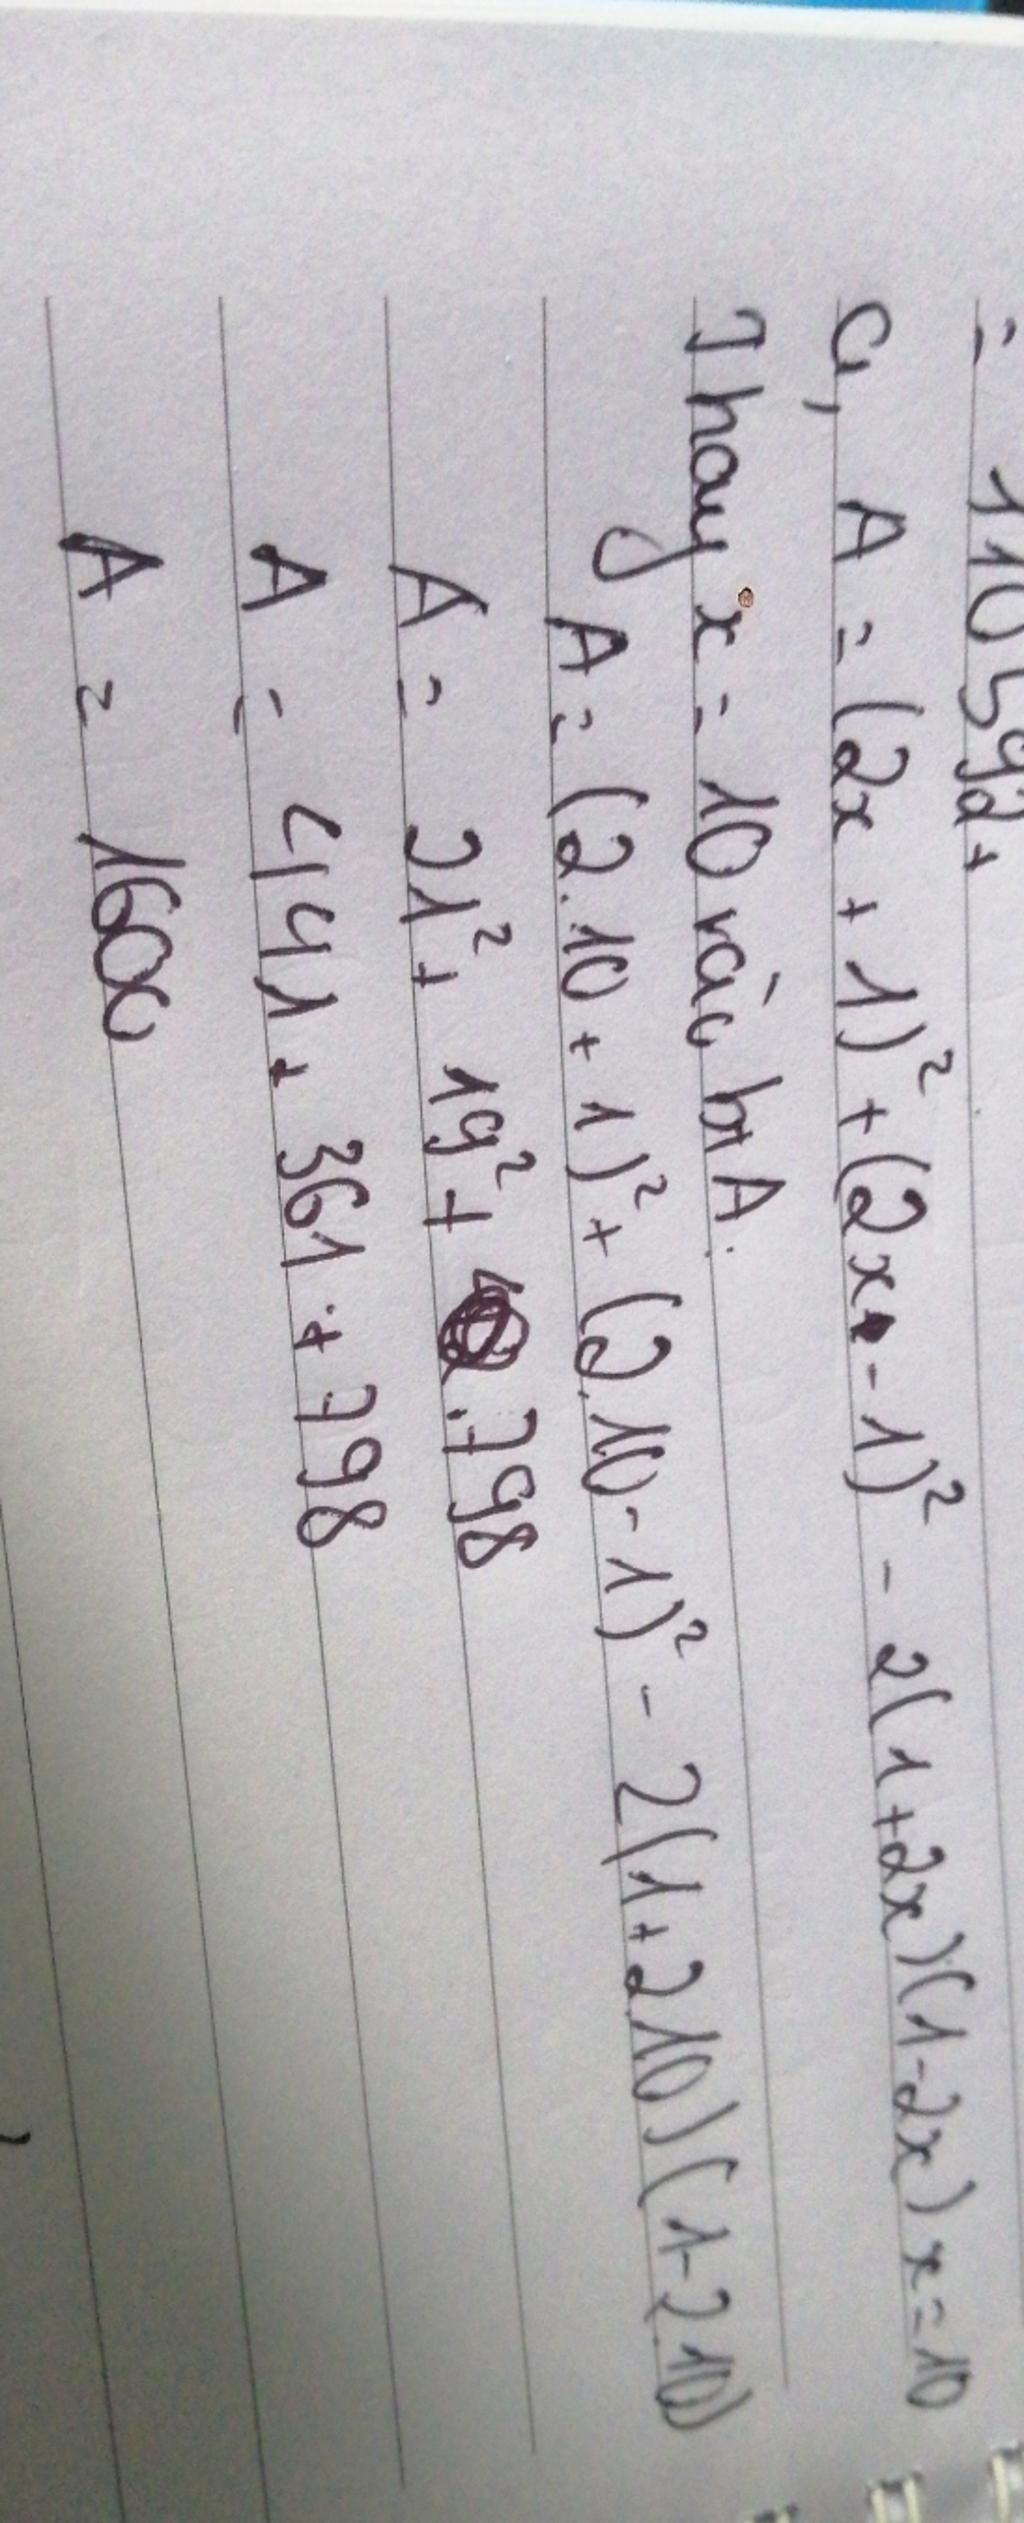 = 110592+
a, A = (2x + 1)² + (2x - 1)² - 2(1+2x)(1-2x) x=10
Thay x = 10 vào bt A:
A = (2.10 + 1)² + (2.10 - 1)² - 2(1+2.10)(1-2.10)
A = 21² + 19² + 798
A = 441 + 361 + 798
A = 1600